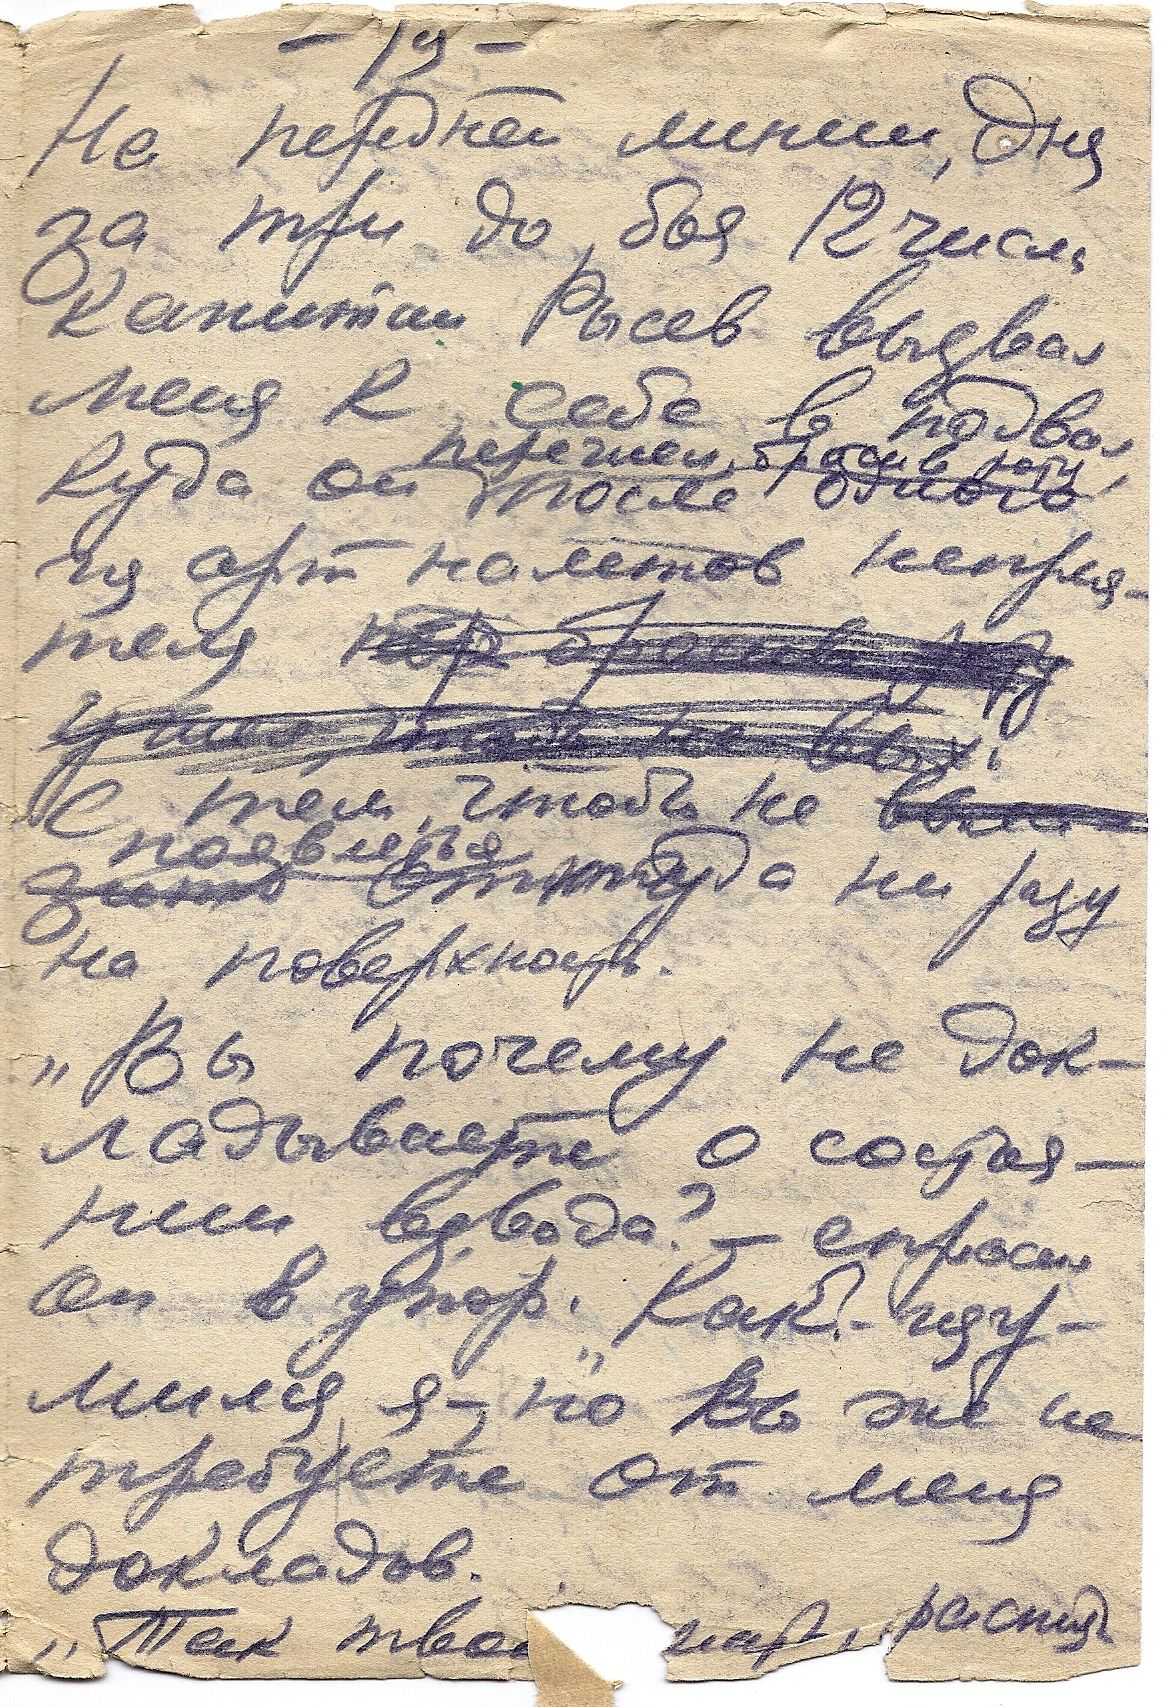 - 19 -
На передней линии, дня
за три до боя 12 числа
капитан Рысев вызвал
меня к себе в подвал
перешел, бросив роту,
куда он после одного
из арт налетов неприя-
теля
С тем, чтобы не
появлеться
оттуда ни разу
на поверхность.
„Вы почему не док-
ладываете о состоя-
нии взвода? - спросил
он в упор. Как? - изу-
мился я -, но Вы же не
требуете от меня
докладов.
„Так твою